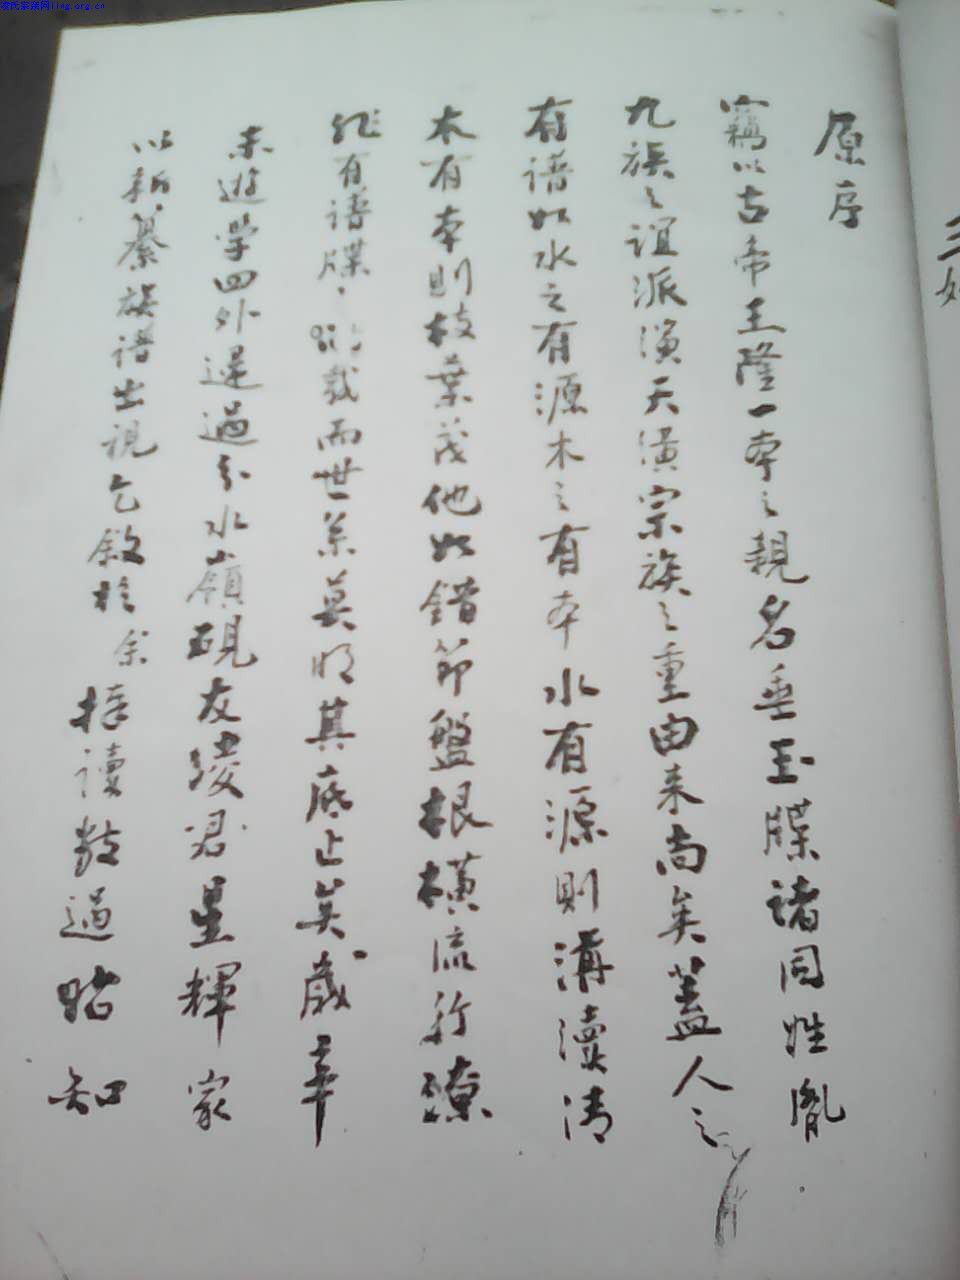 凌氏宗亲网ling.org.cn
原序
竊以古帝王隆一本之親名垂玉牒諸同姓胤
九族之誼派演天潢宗族之重由来尚矣蓋人之
有譜如水之有源木之有本水有源則溝瀆清
木有本則枝葉茂他如錯節盤根橫流行潦
有譜牒載而世系莫明其底止矣歲辛
未遊学四外還過分水嶺硯友凌君星輝家
以新纂族譜出視乞敘於余捧讀數過始知
三